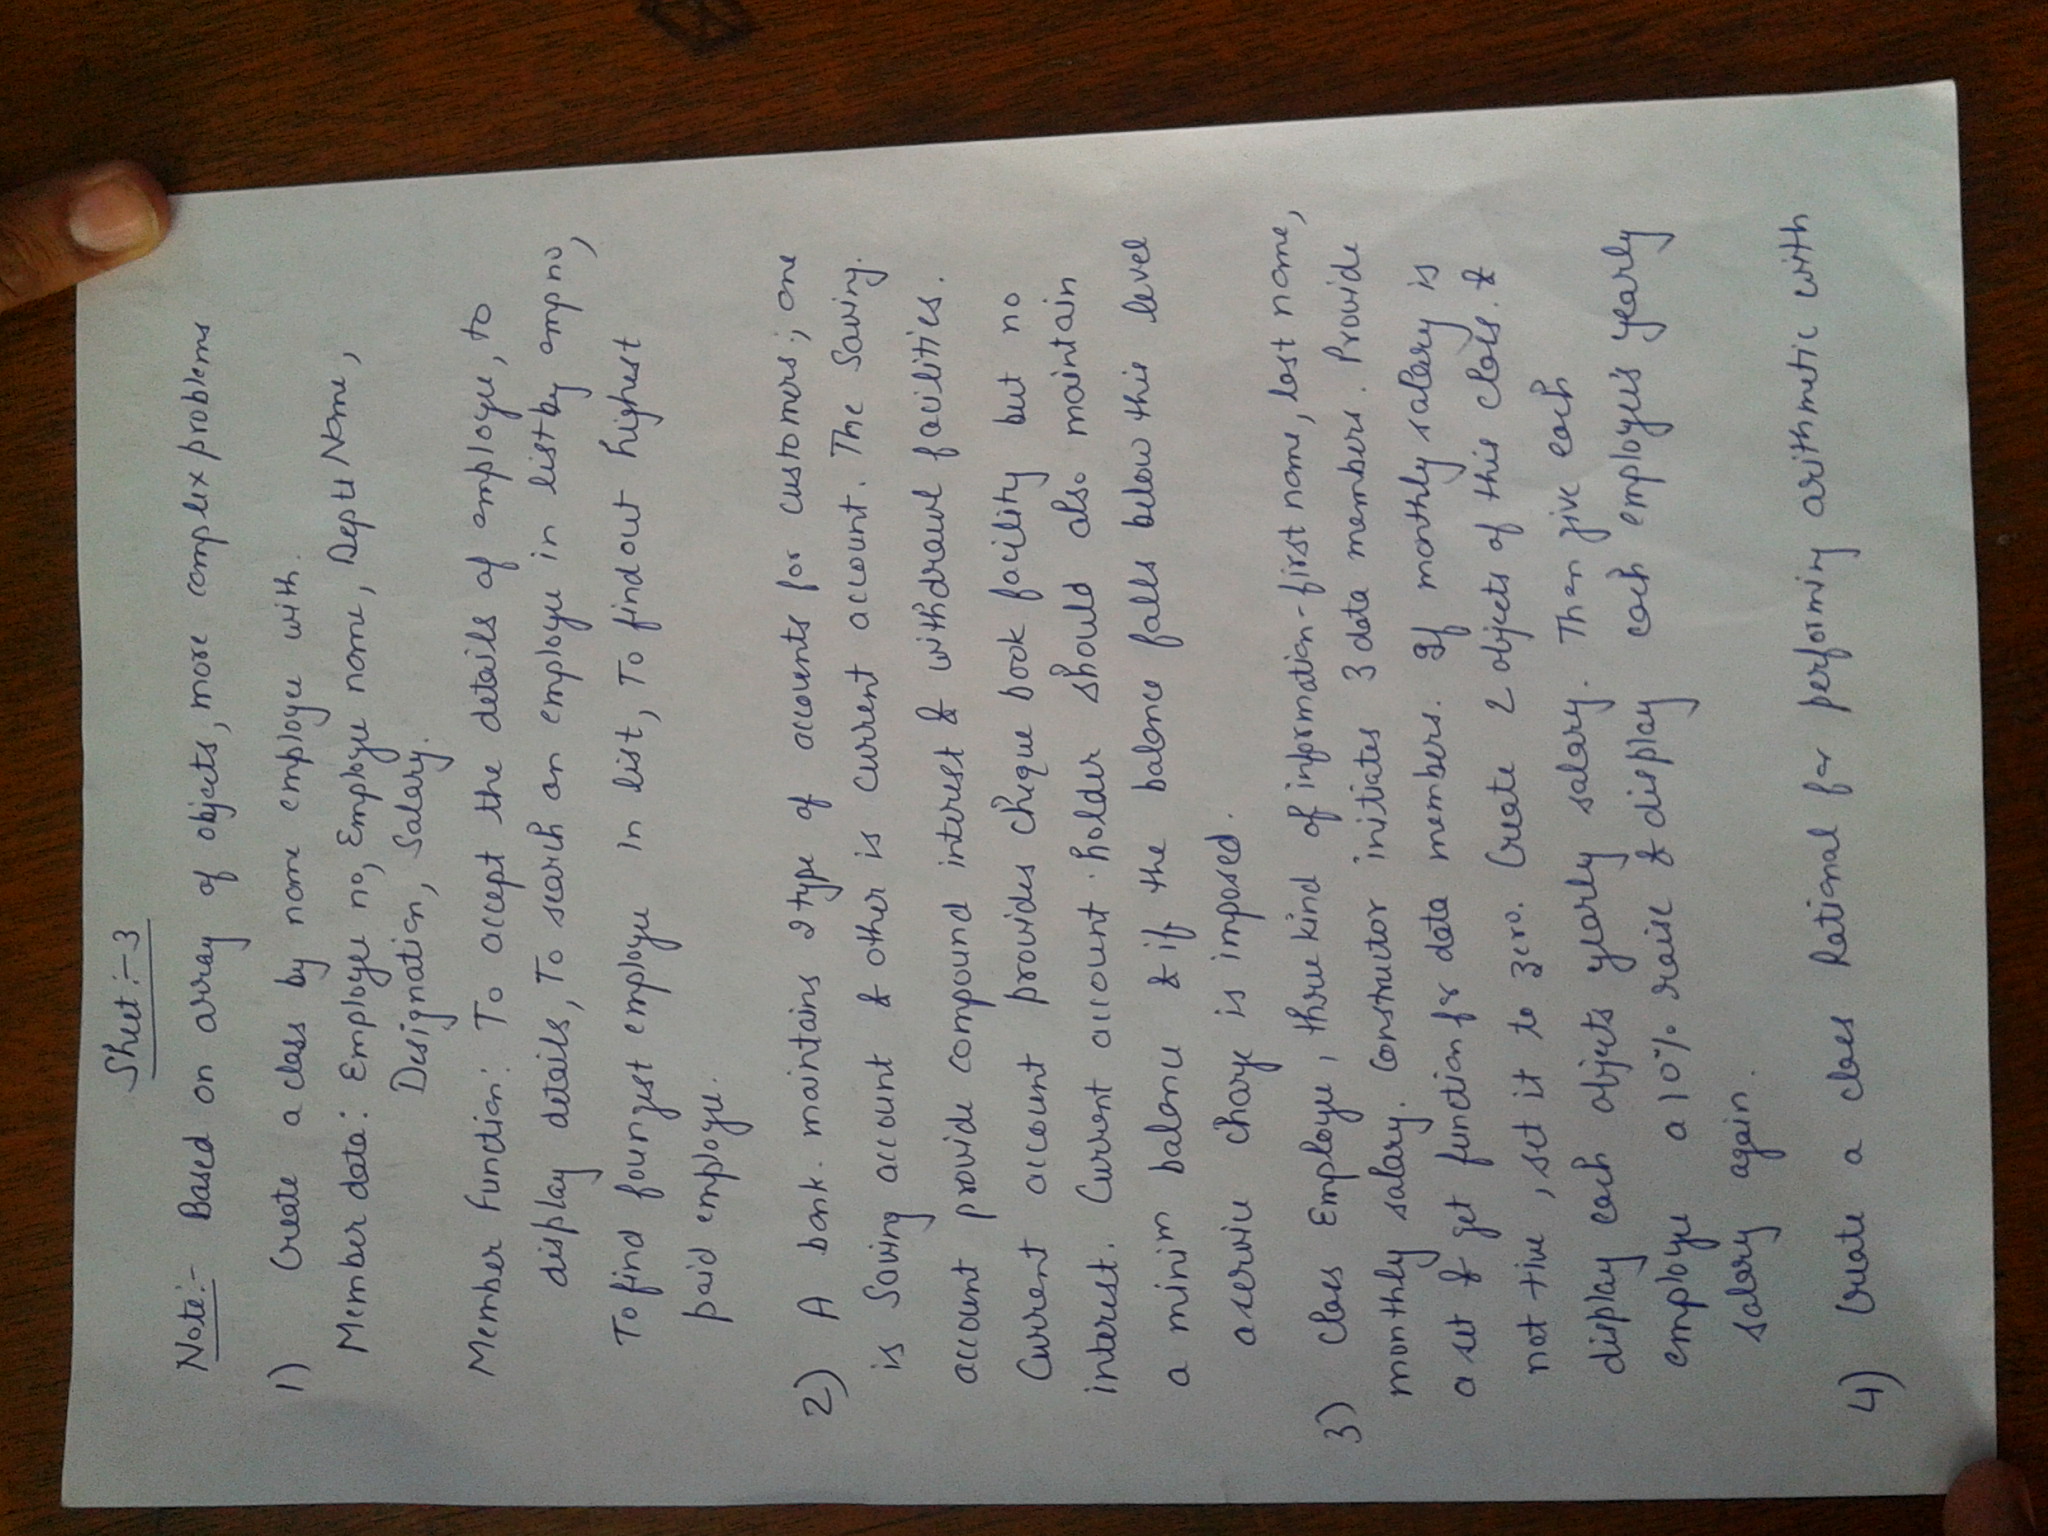 Sheet :- 3
Note:- Based on array of objects, more complex problems
1) Create a class by name employee with.
Member data: Employee no, Employee name, Deptt Name,
Designation, Salary.
Member function: To accept the details of employee, to
display details, To search an employee in list by emp no,
To find youngest employee in list, To find out highest
paid employee.
2) A bank. maintains 2 type of accounts for customers; one
is Saving account & other is current account. The Saving.
account provide compound interest & withdrawl facilities.
Current account provides cheque book facility but no
interest. Current account holder should also maintain
a minim balance & if the balance falls below this level
a service charge is imposed.
3) Class Employee, three kind of information - first name, last name,
monthly salary. Constructor initiates 3 data members. Provide
a set & get function for data members. If monthly salary is
not +ive, set it to zero. Create 2 objects of this class. &
display each objects yearly salary. Then give each
employee a 10% raise & display each employee's yearly
salary again.
4) Create a class Rational for performing arithmetic with